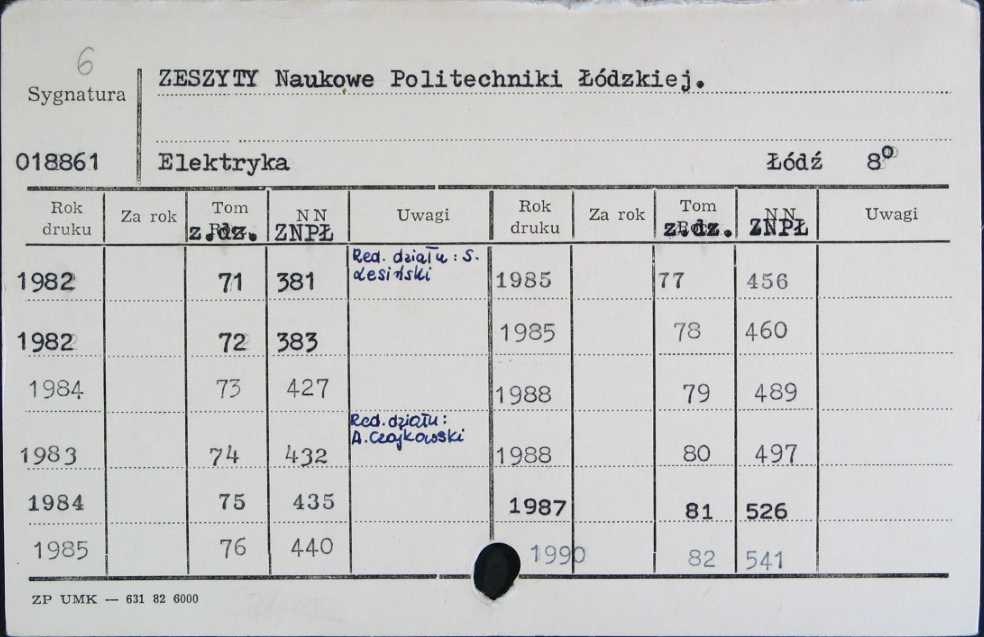 6
Sygnatura ZESZYTY Naukowe Politechniki Łódzkiej.
018861 Elektryka Łódź 8º
Rok druku Za rok Tom z.dz. NN ZNPŁ Uwagi Rok druku Za rok Tom z.dz. NN ZNPŁ Uwagi
1982 71 381 Red. działu: S. Lesiński 1985 77 456
1982 72 383 1985 78 460
1984 73 427 1988 79 489
1983 74 432 Red. działu: A. Czajkowski 1988 80 497
1984 75 435 1987 81 526
1985 76 440 1990 82 541
ZP UMK — 631 82 6000